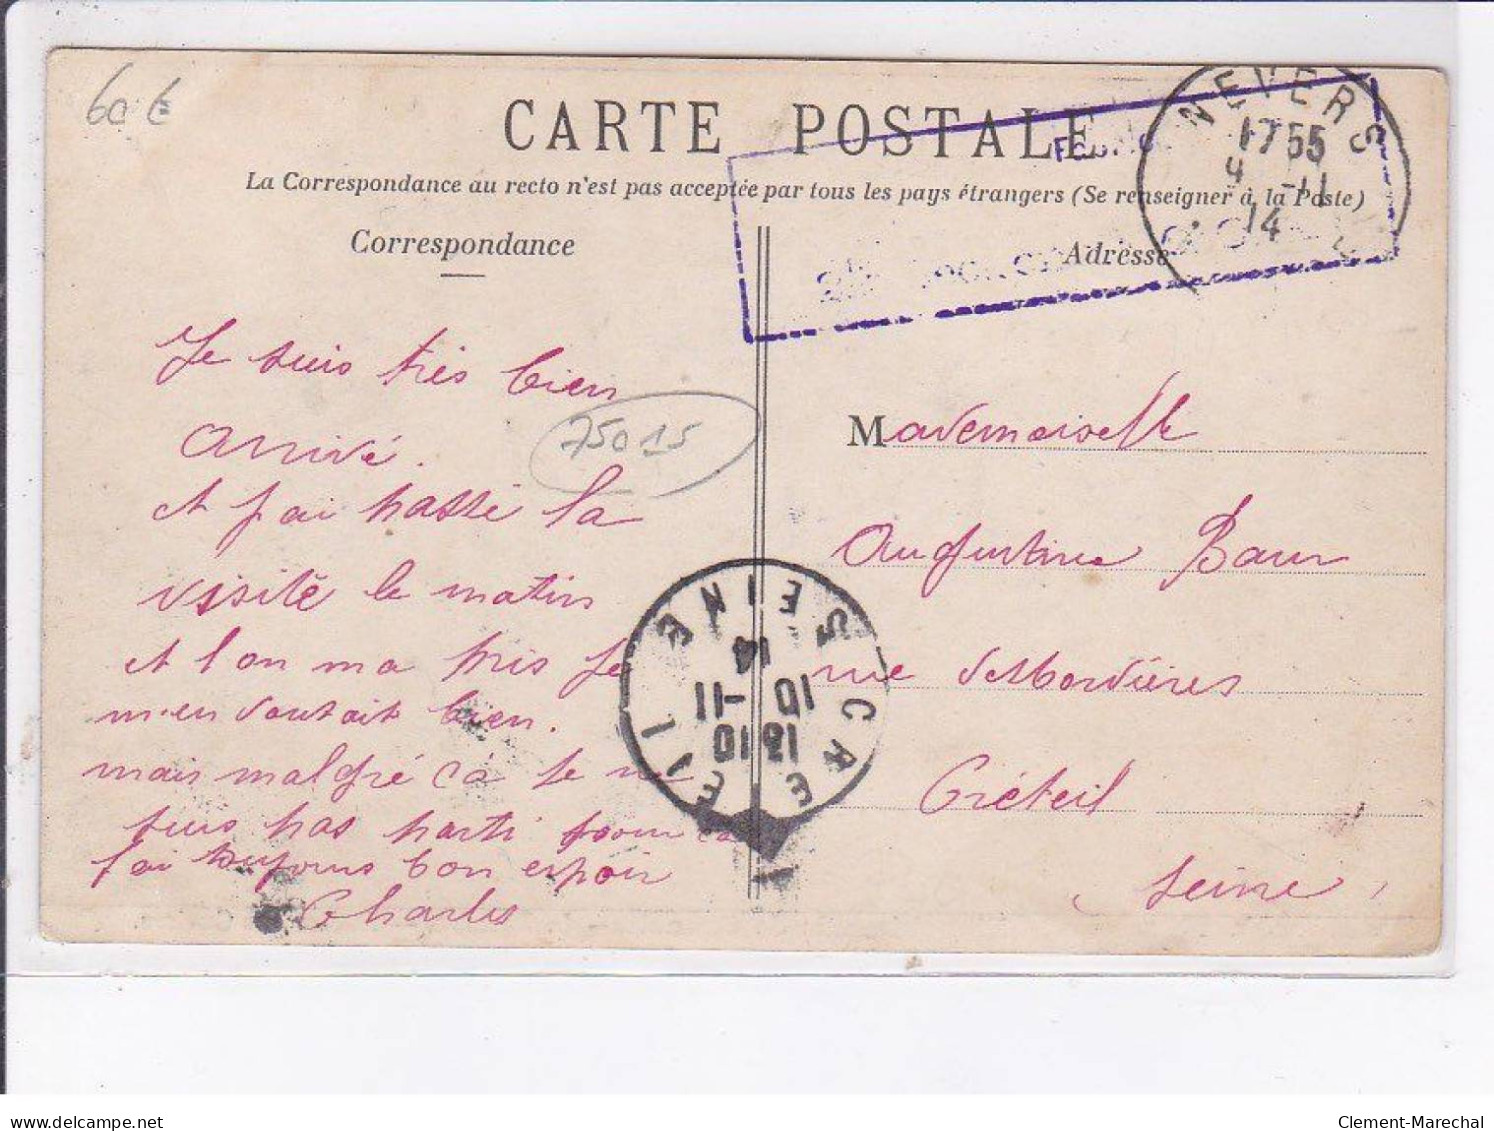 60 €
CARTE POSTALE
La Correspondance au recto n'est pas acceptée par tous les pays étrangers (Se renseigner à la Poste)
NEVERS
17 55
9 -11
14
Correspondance
Adresse
Je suis très bien
arrivé.
et j'ai passé la
visite le matin
et l'on ma pris je
m'en doutait bien.
mais malgré ça je ne
suis pas parti pour ça
j'ai toujours bon espoir
Charles
75015
CRETEIL SEINE
13 10
10 -11
14
Mademoiselle
Augustine Baur
rue des Mordières
Créteil
Seine
delcampe.net
Clement-Marechal